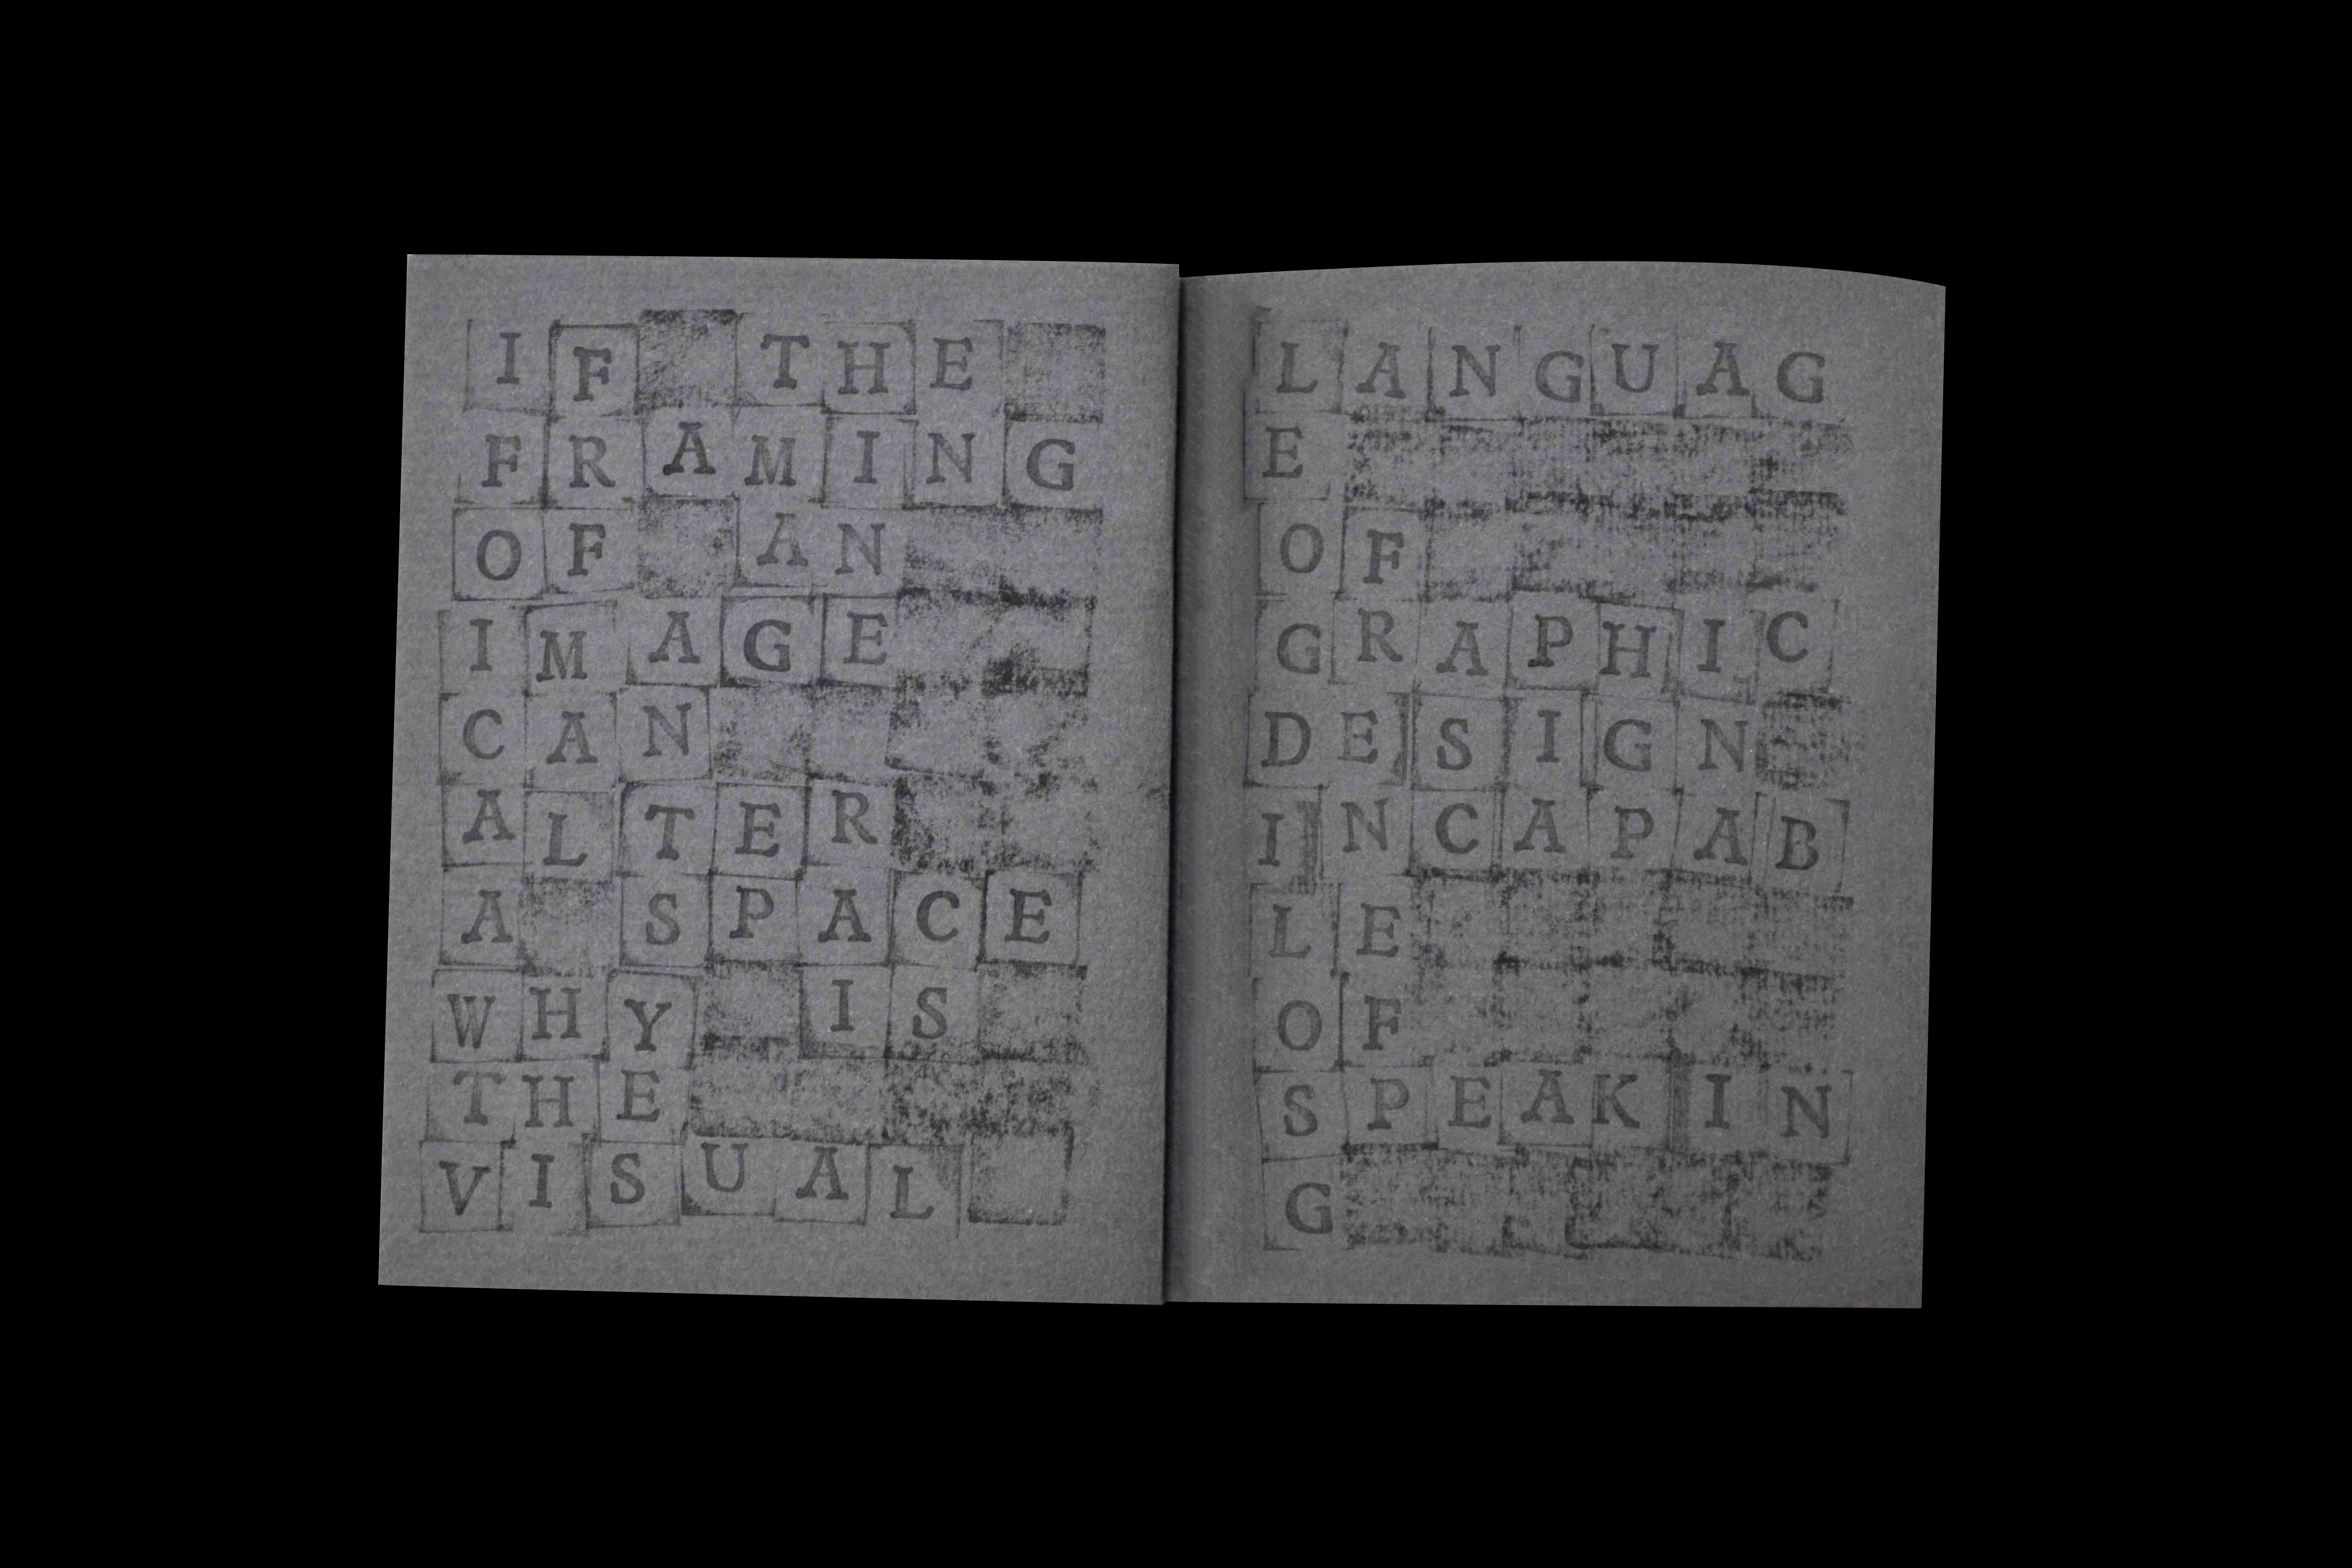 IF THE
FRAMING
OF AN
IMAGE
CAN
ALTER
A SPACE
WHY IS
THE
VISUAL
LANGUAG
E
OF
GRAPHIC
DESIGN
INCAPAB
LE
OF
SPEAKIN
G